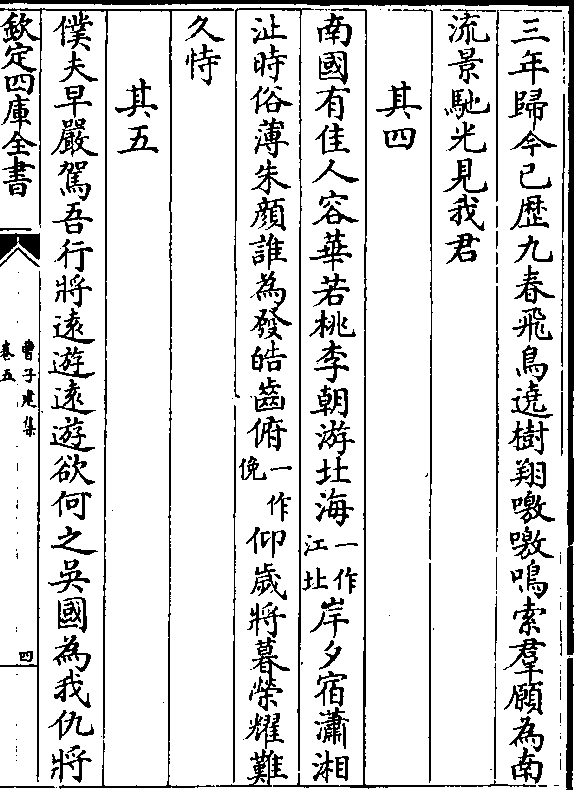 三年歸今已歴九春飛鳥遶樹翔噭噭鳴索羣願為南
流景馳光見我君
其四
南國有佳人容華若桃李朝游北海一作江北岸夕宿瀟湘
沚時俗薄朱顔誰為發皓齒俯一作俛仰歲將暮榮耀難
久恃
其五
僕夫早嚴駕吾行將逺遊逺遊欲何之吳國為我仇將
欽定四庫全書
曹子建集
卷五
四